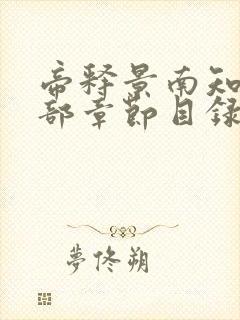 帝释景南知
部章節目録
夢佟朔